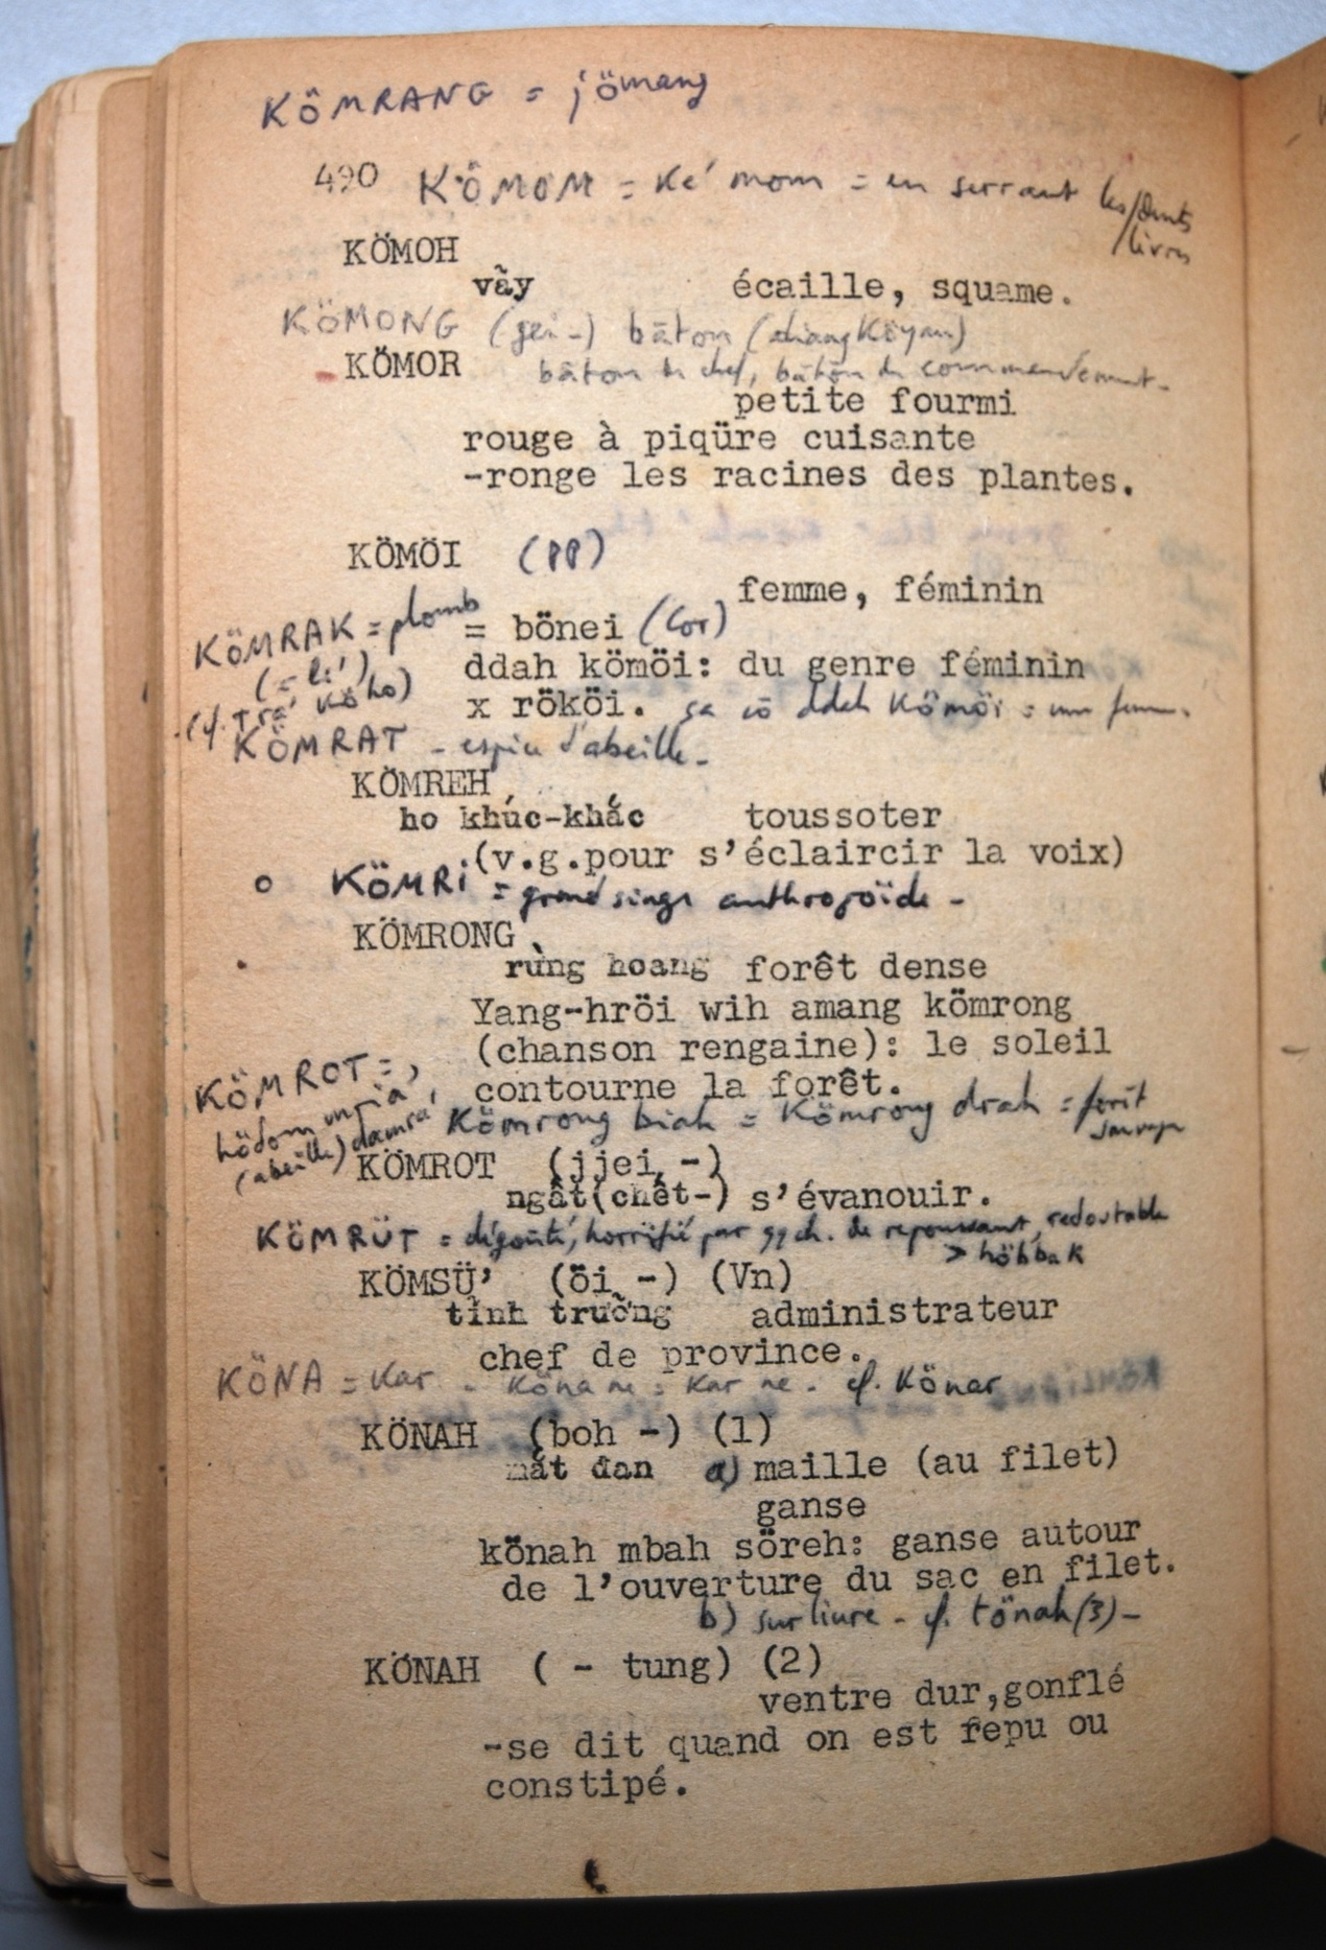 KÖMRANG = jömang
490 KÖMOM = Ké mom = en serrant les dents
/ lèvres
KÖMOH
vãy écaille, squame.
KÖMONG (gei -) bâton
KÖMOR bâton de chef, bâton de commandement -
petite fourmi
rouge à piqüre cuisante
-ronge les racines des plantes.
KÖMÖI (PP)
femme, féminin
KÖMRAK = plomb
(= li')
(cf. tra' Köho)
= bönei (Cor)
ddah kömöi: du genre féminin
x rököi. sa ddah Kömöi = une femme.
KÖMRAT - espèce d'abeille -
KÖMREH
ho khúc-khắc toussoter
(v.g.pour s'éclaircir la voix)
o KÖMRI = grand singe anthropoïde -
KÖMRONG
rừng hoang forêt dense
Yang-hröi wih amang kömrong
(chanson rengaine): le soleil
contourne la forêt.
KÖMROT =
(abeille)
Kömrong biah = Kömrong drah = forêt
sauvage
KÖMROT (jjei -)
ngất(chết-) s'évanouir.
KÖMRÜT = dégoûté, horrifié par qqch. de repoussant, redoutable
> höbbak
KÖMSÜ' (öi -) (Vn)
tỉnh trưởng administrateur
chef de province.
KÖNA = Kar - Köna ne = Kar ne - cf. Könar
KÖNAH (boh -) (1)
mắt đan a) maille (au filet)
ganse
könah mbah söreh: ganse autour
de l'ouverture du sac en filet.
b) surliure - cf. tönah (3) -
KÖNAH ( - tung) (2)
ventre dur,gonflé
-se dit quand on est repu ou
constipé.